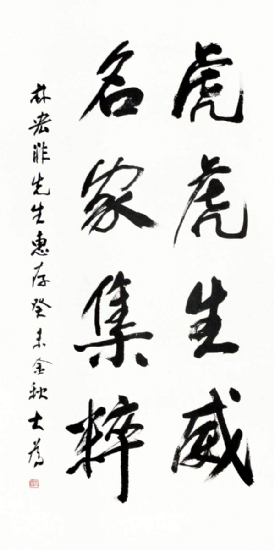 虎虎生威
名家集粹
林宏非先生惠存癸未金秋大为